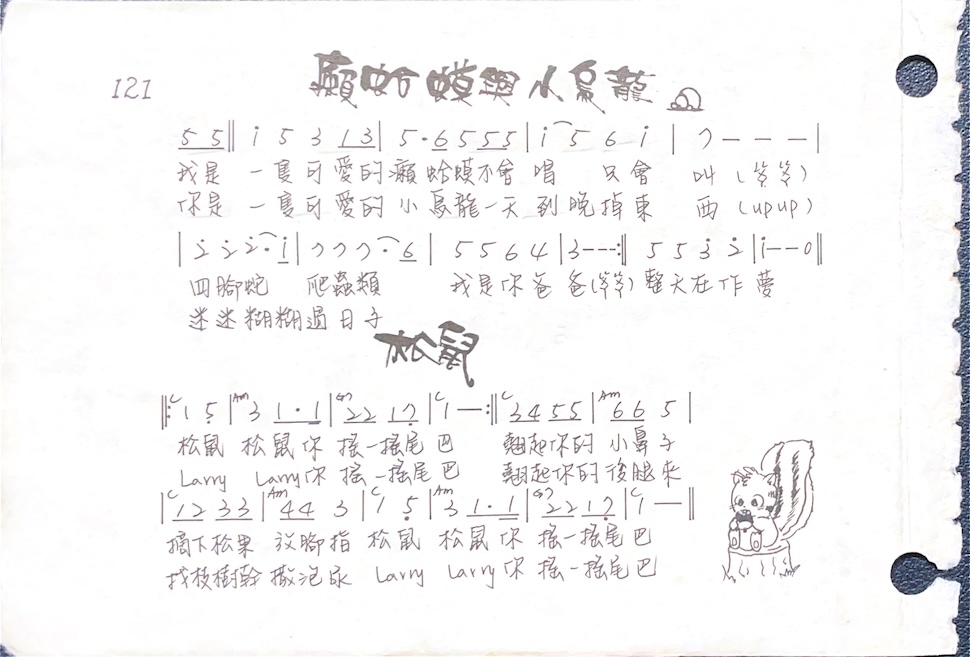 121
癩蛤蟆與小烏龍
5 5‖ i 5 3 1 3 | 5 · 6 5 5 5 | i 5 6 i | 7 — — — |
我是 一隻可愛的癩蛤蟆不會 唱 只會 叫(爸爸)
你是 一隻可愛的小烏龍一天到晚掉東 西(up up)
| 2̇ 2̇ 2̇ · i | 7 7 7 · 6 | 5 5 6 4 | 3 - - - :‖ 5 5 3̇ 2̇ | i — — 0 ‖
四腳蛇 爬蟲類 我是你爸 爸(爸爸) 整天在作夢
迷迷糊糊過日子
松鼠
‖: C 1 5̣ | Am 3 1 · 1 | G7 2 2 1 7̣ | C 1 — :‖ C 3 4 5 5 | Am 6 6 5 |
松鼠 松鼠你 搖一搖尾巴 翹起你的 小鼻子
Larry Larry你 搖一搖尾巴 翹起你的後腿來
| C 1 2 3 3 | Am 4 4 3 | C 1 5̣ | Am 3 1 · 1 | G7 2 2 1 7̣ | C 1 — ‖
摘下松果 放腳指 松鼠 松鼠你 搖一搖尾巴
找枝樹幹 撒泡尿 Larry Larry你 搖一搖尾巴